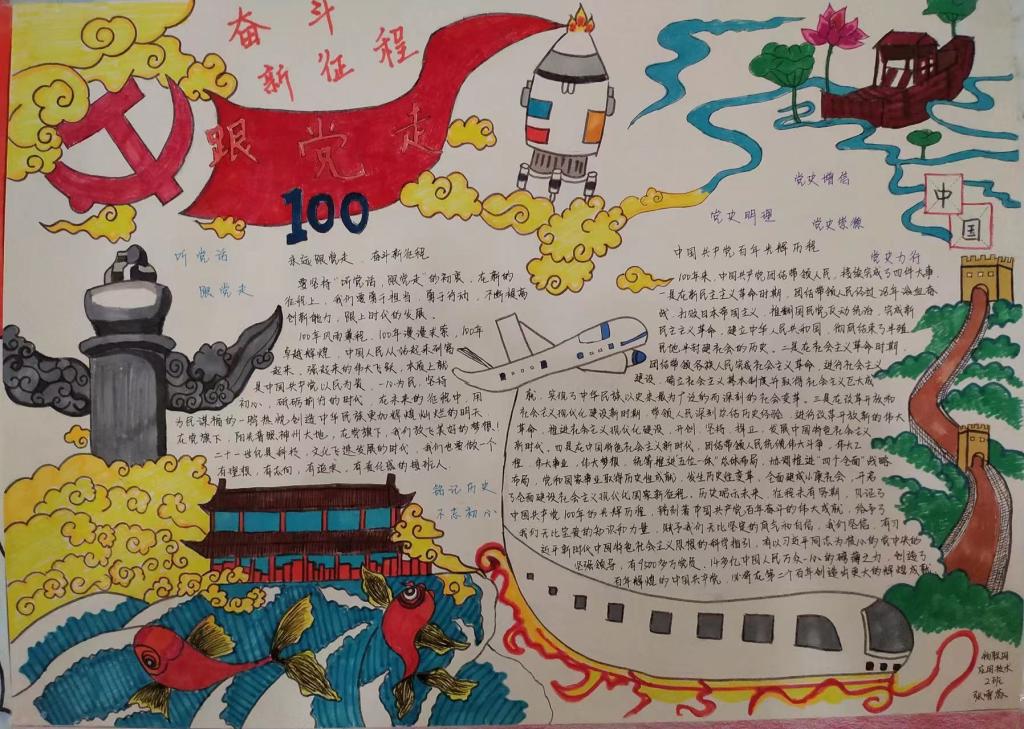 奋斗
新征程
跟党走
100
听党话
跟党走
永远跟党走、奋斗新征程
要坚持“听党话、跟党走”的初衷,在新的
征程上,我们要勇于担当,勇于行动,不断提高
创新能力,跟上时代的发展。
100年风雨兼程,100年漫漫求索,100年
卓越辉煌,中国人民从站起来到富
起来、强起来的伟大飞跃,本质上就
是中国共产党以民为贵、一心为民,坚持
初心,砥砺前行的时代,在未来的征程中,用
为民谋福的一腔热忱创造中华民族更加辉煌灿烂的明天
在党旗下,阳光普照神州大地,在党旗下,我们放飞美好的梦想!
二十一世纪是科技、文化飞速发展的时代,我们也要做一个
有理想、有志向、有追求、有责任感的接班人
铭记历史
不忘初心
党史增信
党史明理
党史崇德
党史力行
中国
中国共产党百年光辉历程
100年来,中国共产党团结带领人民,接续完成了四件大事
一是在新民主主义革命时期,团结带领人民经过28年浴血奋
战,打败日本帝国主义,推翻国民党反动统治,完成新
民主主义革命,建立中华人民共和国,彻底结束了半殖
民地半封建社会的历史。二是在社会主义革命时期,
团结带领各族人民完成社会主义革命,进行社会主义
建设,确立社会主义基本制度并取得社会主义巨大成
就,实现了中华民族有史以来最为广泛而深刻的社会变革。三是在改革开放和
社会主义现代化建设新时期,带领人民深刻总结历史经验,进行改革开放新的伟大
革命,推进社会主义现代化建设,开创、坚持、捍卫、发展中国特色社会主义
新时代,四是在中国特色社会主义新时代,团结带领人民统揽伟大斗争、伟大工
程、伟大事业、伟大梦想,统筹推进五位一体”总体布局,协调推进“四个全面”战略
布局,党和国家事业取得历史性成就,发生历史性变革,全面建成小康社会,开启
了全面建设社会主义现代化国家新征程。历史昭示未来,征程未有穷期,见证了
中国共产党100年的光辉历程,镌刻着中国共产党百年奋斗的伟大成就,给予了
我们无比宝贵的知识和力量,赋予我们无比坚定的勇气和自信,我们坚信,有习
近平新时代中国特色社会主义思想的科学指引,有以习近平同志为核心的党中央的
坚强领导,有9500多万党员、14多亿中国人民万众一心的磅礴之力,创造了
百年辉煌的中国共产党,必将在第二个百年创造出更大的辉煌成就
物联网
应用技术
2班